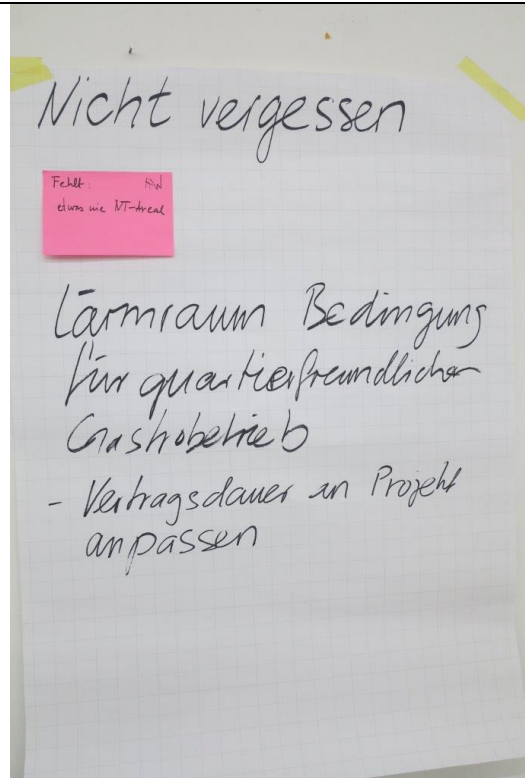 Nicht vergessen
Fehlt:
etwas wie NT-Areal
Lärmraum Bedingung
für quartierfreundlichen
Gastrobetrieb
- Vertragsdauer an Projekt
anpassen